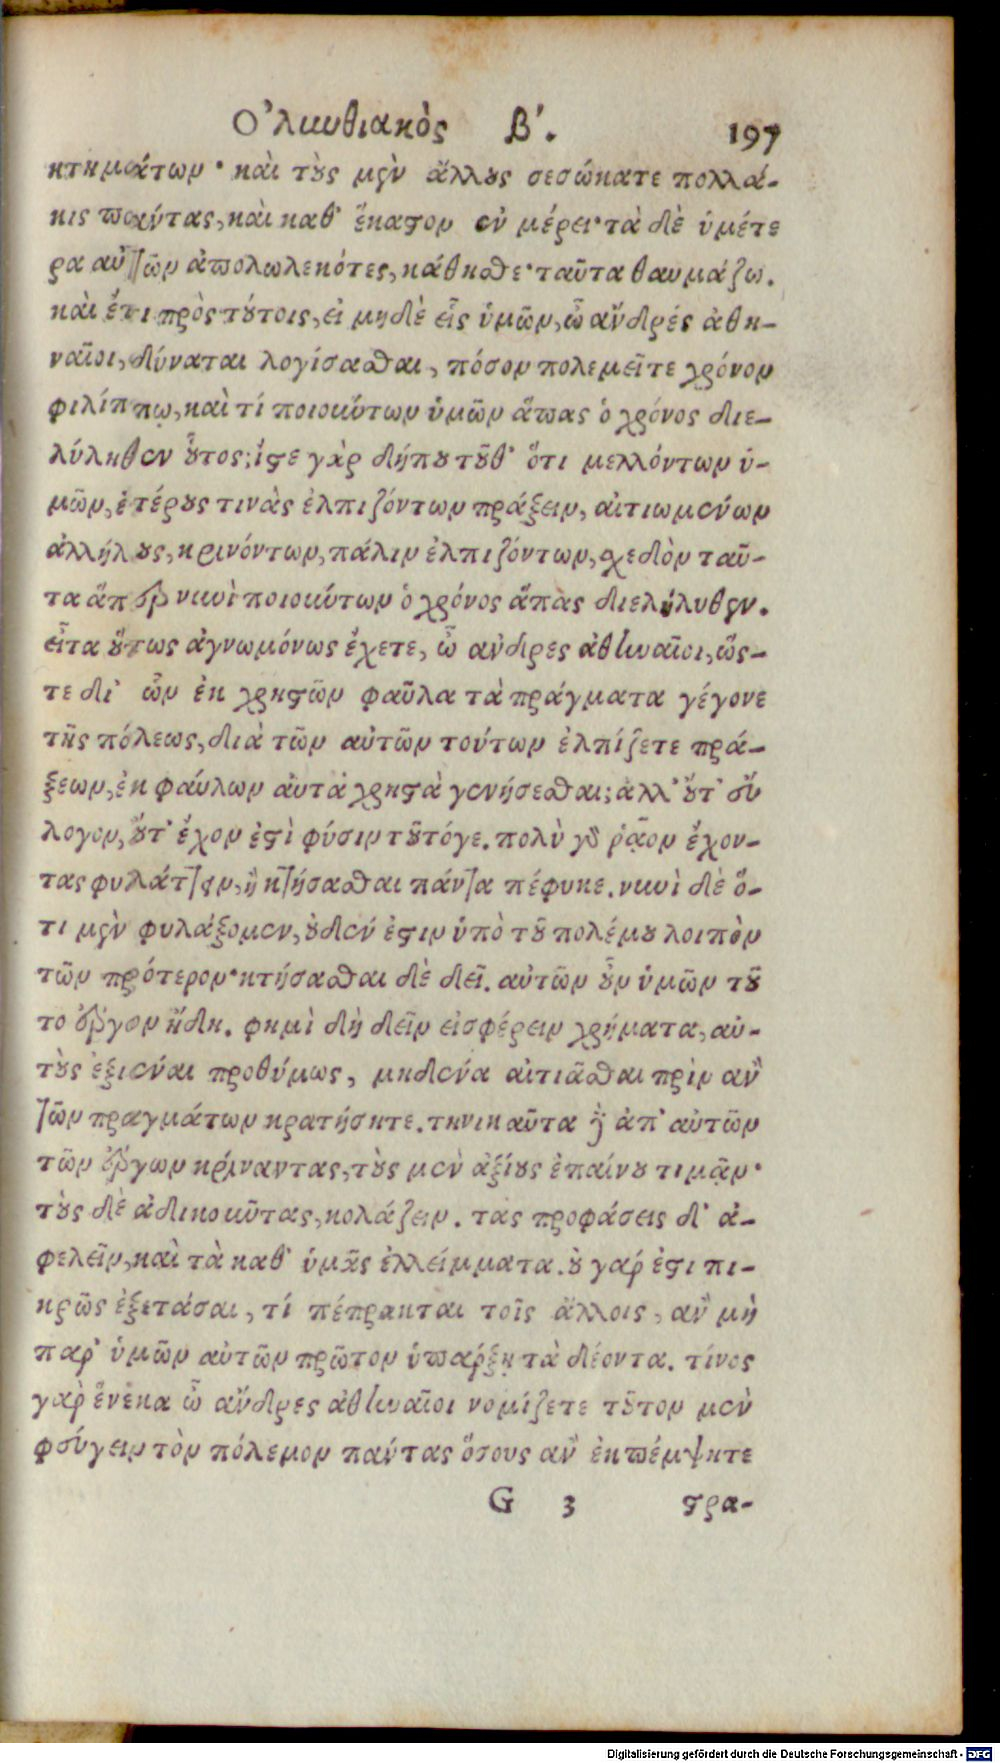 Ὀλιωθιακὸς Β'. 197
κτημάτων· καὶ τοὺς μὲν ἄλλους σεσώκατε πολλά-
κις πάντας, καὶ καθ' ἕκαστον ἐν μέρει· τὰ δὲ ὑμέτε
ρα αὐτῶν ἀπολωλεκότες, κάθησθε· ταῦτα θαυμάζω.
καὶ ἔτι πρὸς τούτοις, εἰ μηδὲ εἷς ὑμῶν, ὦ ἄνδρές ἀθη-
ναῖοι, δύναται λογίσασθαι, πόσον πολεμεῖτε χρόνον
φιλίππῳ, καὶ τί ποιούντων ὑμῶν ἅπας ὁ χρόνος διε-
λύληθεν οὗτος; ἴστε γὰρ δήπου τοῦθ' ὅτι μελλόντων ὑ-
μῶν, ἑτέρους τινὰς ἐλπιζόντων πράξειν, αἰτιωμένων
ἀλλήλους, κρινόντων, πάλιν ἐλπιζόντων, σχεδὸν ταῦ-
τα ἅπερ νυνὶ ποιούντων ὁ χρόνος ἅπας διελήλυθεν.
εἶτα οὕτως ἀγνωμόνως ἔχετε, ὦ ανδρες ἀθηναῖοι, ὥς-
τε δι' ὧν ἐκ χρηστῶν φαῦλα τὰ πράγματα γέγονε
τῆς πόλεως, διὰ τῶν αὐτῶν τούτων ἐλπίζετε πρά-
ξεων, ἐκ φαύλων αὐτὰ χρηστὰ γενήσεσθαι; ἀλλ' οὔτ' εὔ
λογον, οὔτ' ἔχον ἐστὶ φύσιν τοῦτόγε. πολὺ γὰρ ῥᾷον ἔχον-
τας φυλάττειν, ἢ κτήσασθαι πάντα πέφυκε. νυνὶ δὲ ὅ-
τι μὲν φυλάξομεν, οὐδέν ἐστιν ὑπὸ τοῦ πολέμου λοιπὸν
τῶν πρότερον· κτήσασθαι δὲ δεῖ. αὐτῶν οὖν ὑμῶν τοῦ
το ἔργον ἤδη. φημὶ δὴ δεῖν εἰσφέρειν χρήματα, αὐ-
τοὺς ἐξιέναι προθύμως, μηδένα αἰτιᾶσθαι πρὶν ἂν
τῶν πραγμάτων κρατήσητε. τηνικαῦτα δὲ ἀπ' αὐτῶν
τῶν ἔργων κρίναντας, τοὺς μὲν ἀξίους ἐπαίνου τιμᾷν·
τοὺς δὲ ἀδικοῦντας, κολάζειν. τας προφάσεις δ' ἀ-
φελεῖν, καὶ τὰ καθ' ὑμᾶς ἐλλείμματα. οὐ γάρ ἐστι πι-
κρῶς ἐξετάσαι, τί πέπρακται τοῖς ἄλλοις, ἂν μὴ
παρ' ὑμῶν αὐτῶν πρῶτον ὑπάρξῃ τὰ δέοντα. τίνος
γὰρ ἕνεκα ὦ ἄνδρες ἀθηναῖοι νομίζετε τοῦτον μὲν
φεύγειν τὸν πόλεμον πάντας ὅσους ἂν ἐκπέμψητε
G 3 στρα-
Digitalisierung gefördert durch die Deutsche Forschungsgemeinschaft - DFG